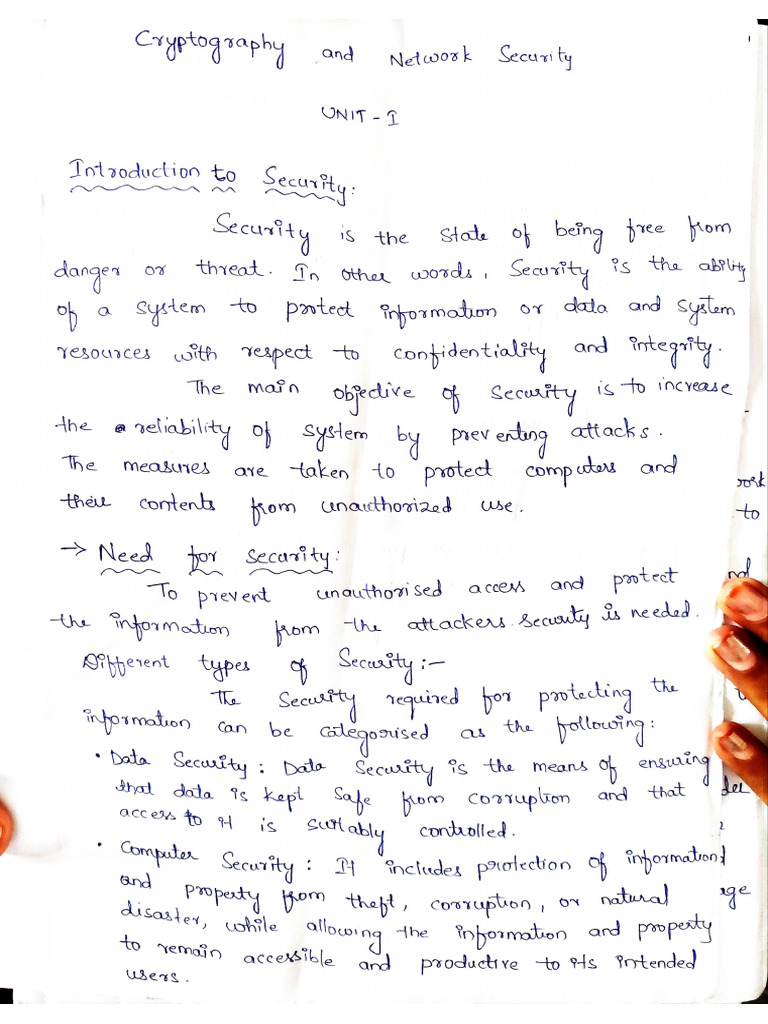 Cryptography and Network Security
UNIT - I
Introduction to Security:
Security is the state of being free from
danger or threat. In other words, Security is the ability
of a system to protect information or data and system
resources with respect to confidentiality and integrity.
The main objective of security is to increase
the reliability of system by preventing attacks.
The measures are taken to protect computers and
their contents from unauthorized use.
→ Need for security:
To prevent unauthorised access and protect
the information from the attackers security is needed.
Different types of Security:-
The Security required for protecting the
information can be categorised as the following:
• Data Security: Data Security is the means of ensuring
that data is kept safe from corruption and that
access to it is suitably controlled.
• Computer Security: It includes protection of information
and property from theft, corruption, or natural
disaster, while allowing the information and property
to remain accessible and productive to its intended
users.